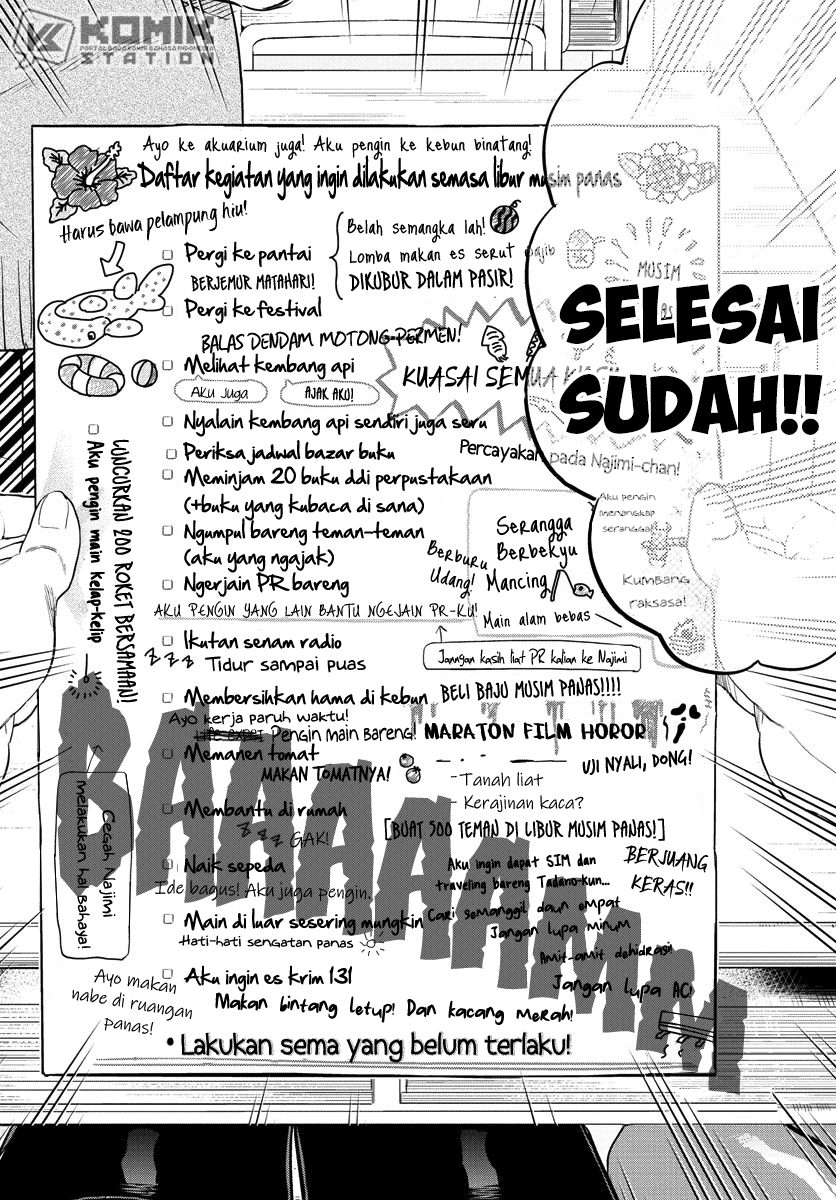 KOMIK
STATION
Ayo ke akuarium juga! Aku pengin ke kebun binatang!
Daftar kegiatan yang ingin dilakukan semasa libur musim panas
Harus bawa pelampung hiu!
Pergi ke pantai
BERJEMUR MATAHARI!
Belah semangka lah!
Lomba makan es serut wajib
DIKUBUR DALAM PASIR!
MUSIM
SELESAI
SUDAH!!
Pergi ke festival
BALAS DENDAM MOTONG PERMEN!
Melihat kembang api
Aku juga
AJAK AKU!
KUASAI SEMUA
Nyalain kembang api sendiri juga seru
Periksa jadwal bazar buku
Percayakan pada Najimi-chan!
Meminjam 20 buku ddi perpustakaan
(+buku yang kubaca di sana)
Ngumpul bareng teman-teman
(aku yang ngajak)
Ngerjain PR bareng
AKU PENGIN YANG LAIN BANTU NGEJAIN PR-KU!
Serangga
Berbekyu
Berburu
Udang!
Mancing
Main alam bebas
Aku pengin
menangkap
serangga!
Kumbang
raksasa!
Janngan kasih liat PR kalian ke Najimi
LUNCURKAN 200 ROKET BERSAMAAN!
Aku pengin main kelap-kelip
Ikutan senam radio
z z z Tidur sampai puas
Membersihkan hama di kebun
BELI BAJU MUSIM PANAS!!!!
Ayo kerja paruh waktu!
Pengin main bareng!
MARATON FILM HOROR
Memanen tomat
MAKAN TOMATNYA!
UJI NYALI, DONG!
- Tanah liat
- Kerajinan kaca?
Membantu di rumah
z z z GAK!
[BUAT 500 TEMAN DI LIBUR MUSIM PANAS!]
Cegah Najimi
melakukan hal bahaya!
Naik sepeda
Ide bagus! Aku juga pengin.
Aku ingin dapat SIM dan
traveling bareng Tadano-kun...
BERJUANG
KERAS!!
Main di luar sesering mungkin
Hati-hati sengatan panas
Cari semanggil daun empat
Jangan lupa minum
Amit-amit dehidrasi
Jangan lupa AC!
Ayo makan
nabe di ruangan
panas!
Aku ingin es krim 131
Makan bintang letup! Dan kacang merah!
• Lakukan sema yang belum terlaku!
BAAAAAAMM!!